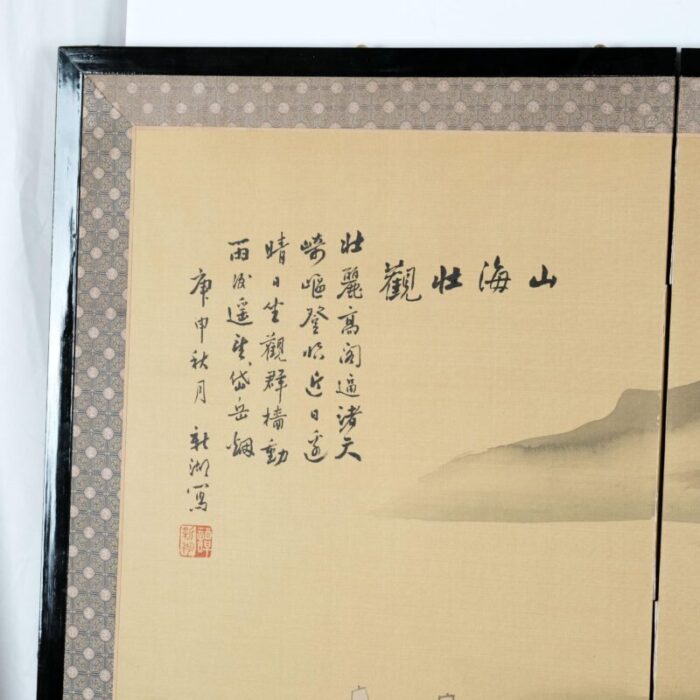 山海壮觀
壮麗高阁逼諸天
崎嶇登临近日邊
晴日坐觀群檣動
雨後遥望岱岳
庚申秋月 新湖寫